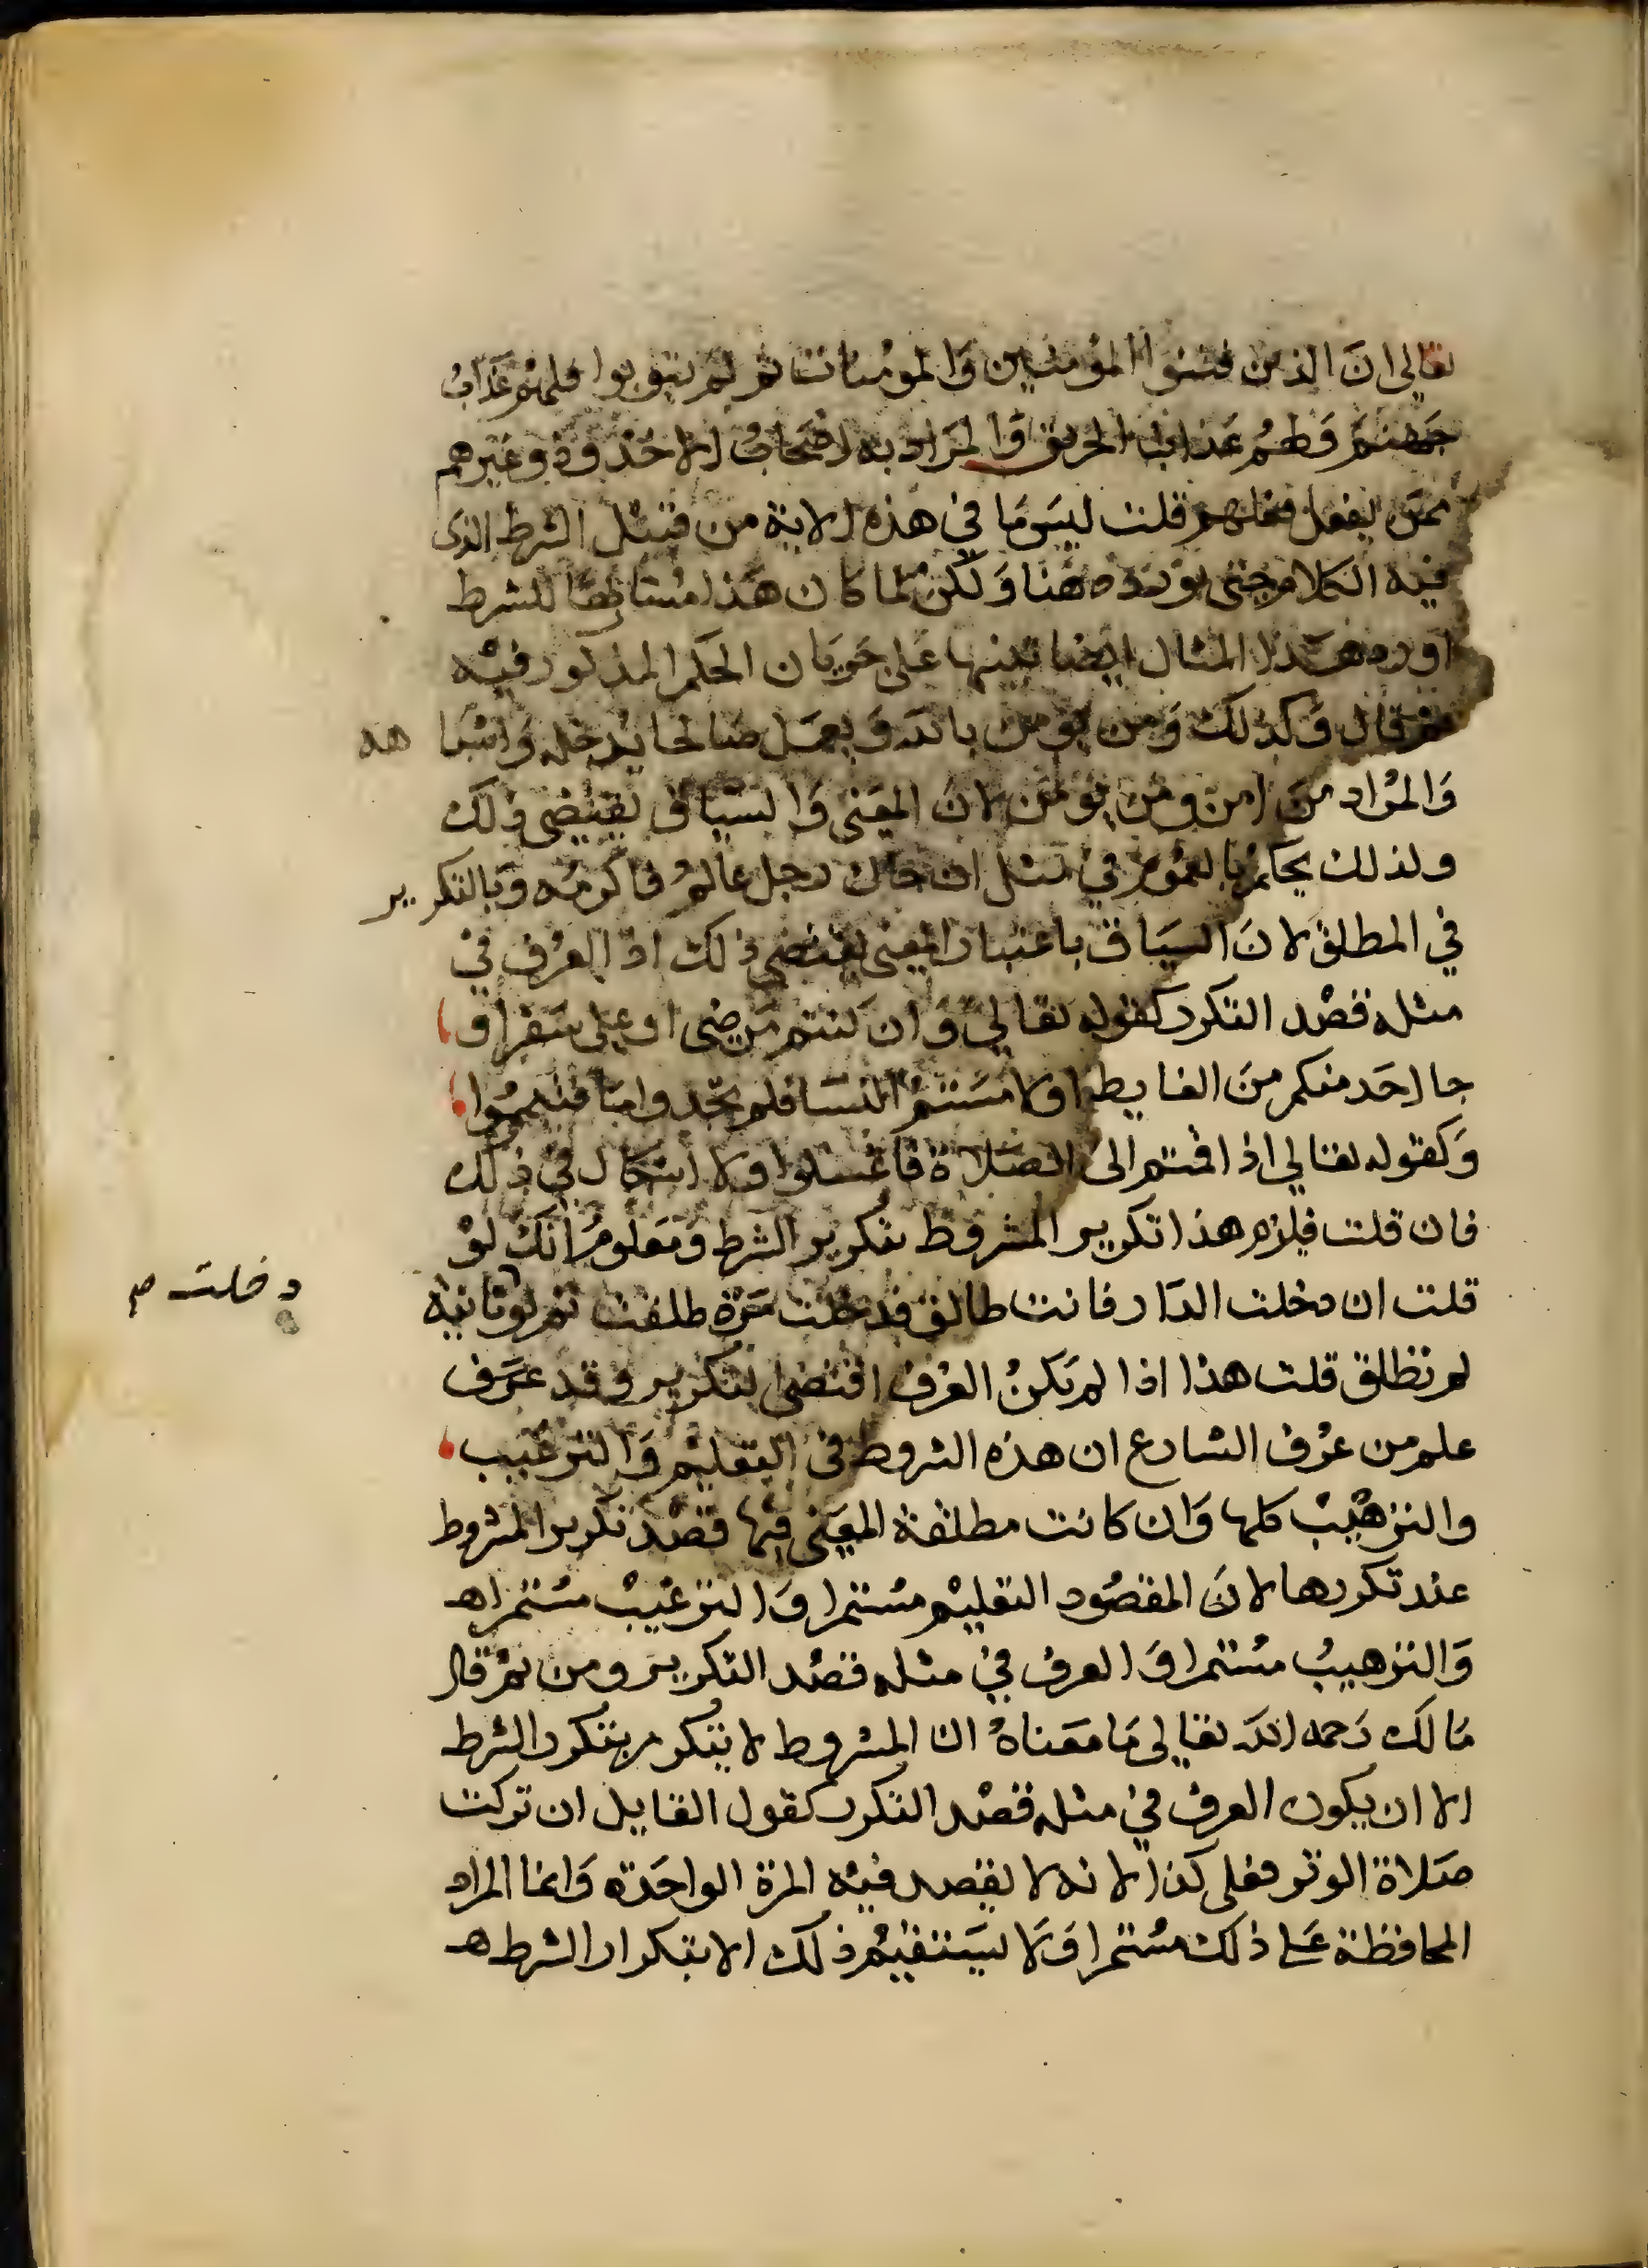 تعالى ان الذين فتنوا المؤمنين والمومنات ثم لم يتوبوا فلهم عذاب
جهنم ولهم عذاب الحريق والمراد به اصحاب الاخدود وغيرهم
ممن يفعل فعلهم قلت ليس ما في هذه الاية من قبيل الشرط الذي
فيه الكلام حتى يورده ههنا ولكن لما كان هذا مشابها للشرط
اورد هذا المثال ايضا تنبيها على جريان الحكم المذكور فيه
ثم قال وكذلك ومن يومن بالله ويعمل صالحا يدخله واشبا هه
والمراد من امن ومن يومن لان المعنى والسياق يقتضي ذلك
ولذلك يحكم بالعموم في مثل ان جاك رجل عالم فاكرمه وبالتكرير
في المطلق لان السياق باعتبار المعنى يقتضي ذلك اذ العرف في
مثله قصد التكرر كقوله تعالى وان كنتم مرضى او على سفر او
جا احد منكم من الغايط او لامستم النسا فلم تجدوا ما فتيمموا
وكقوله تعالى اذا قمتم الى الصلاة فاغسلوا ولا اشكال في ذلك
فان قلت فيلزم هذا تكرير المشروط بتكرير الشرط ومعلوم انك لو
قلت ان دخلت الدار فانت طالق فدخلت مرة طلقت ثم لو ثانية
دخلت صح
لم تطلق قلت هذا اذا لم يكن العرف اقتضى التكرير وقد عرف
علم من عرف الشارع ان هذه الشروط في التعليم والترغيب
والترهيب كلها وان كانت مطلقة المعنى فيها قصد تكرير المشروط
عند تكررها لان المقصود التعليم مستمرا والترغيب مستمرا هـ
والترهيب مستمرا والعرف في مثله قصد التكرير ومن ثم قال
مالك رحمه الله تعالى ما معناه ان المشروط لا يتكرر بتكرر الشرط
الا ان يكون العرف في مثله قصد التكرر كقول القايل ان تركت
صلاة الوتر فعلي كذا لانه لا يقصد فيه المرة الواحدة وانما المراد
المحافظة على ذلك مستمرا ولا يستقيم ذلك الا بتكرار الشرط هـ